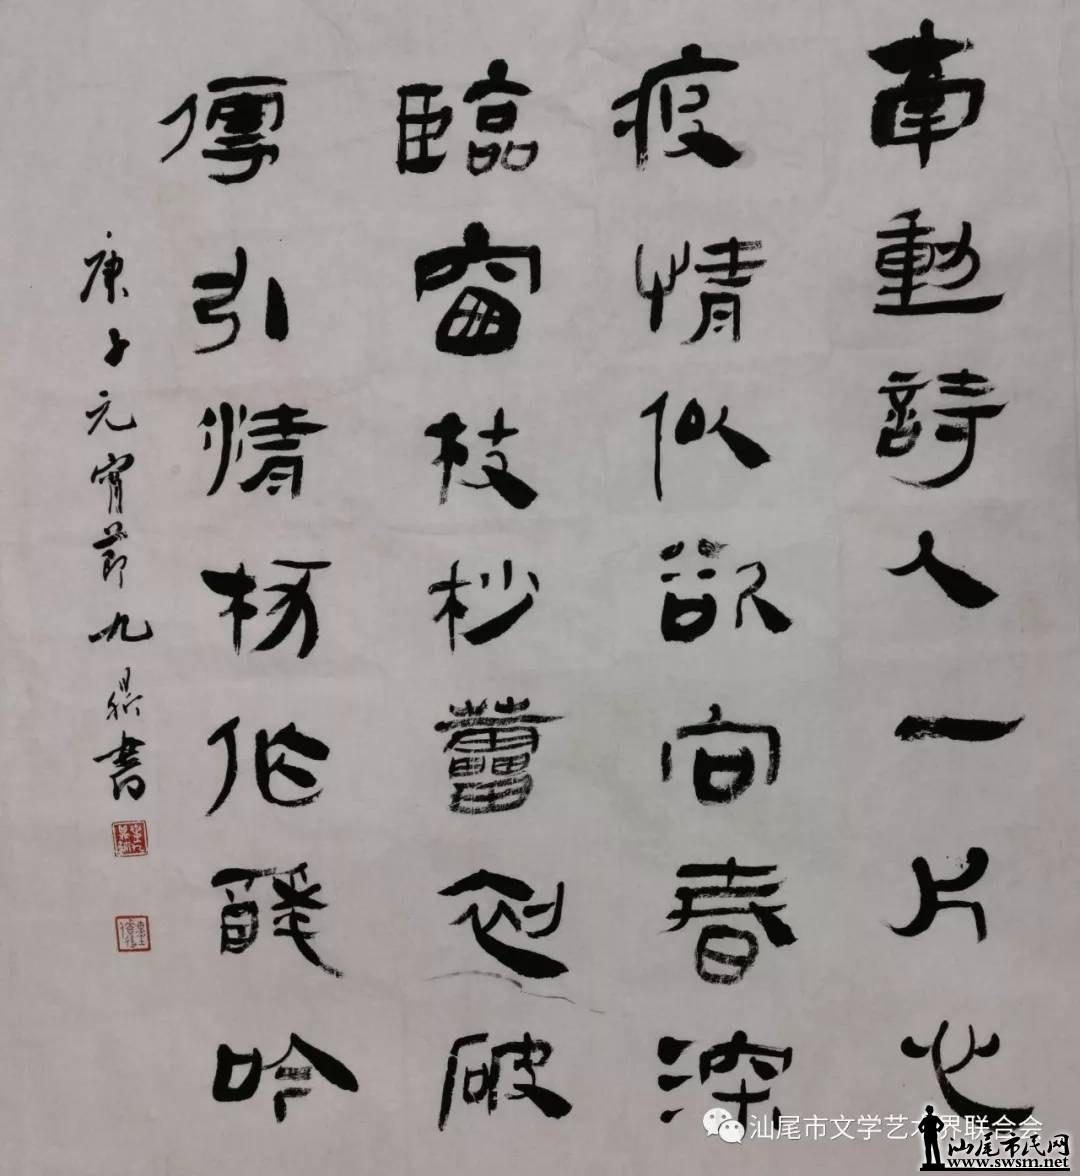 牽動詩人一片心
疫情似欲向春深
臨窗枝杪蕾初破
引情作吟
庚子元宵節九書
汕尾市文学艺术界联合会
汕尾市民网
www.swsm.net